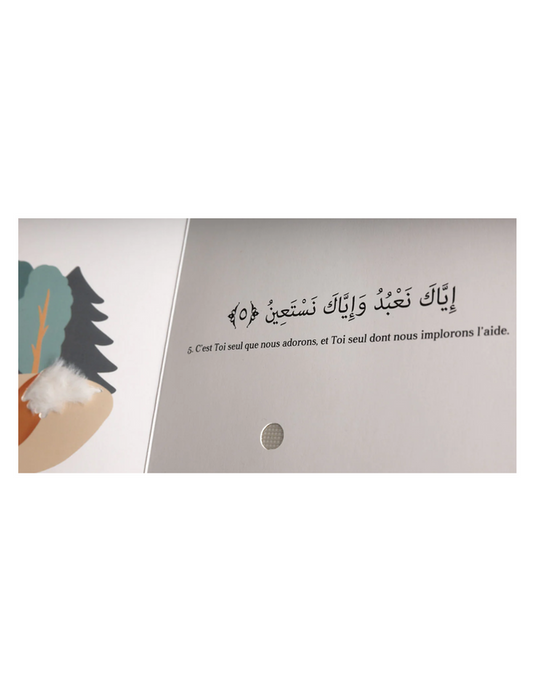 إِيَّاكَ نَعْبُدُ وَإِيَّاكَ نَسْتَعِينُ ﴿٥﴾
5. C'est Toi seul que nous adorons, et Toi seul dont nous implorons l'aide.